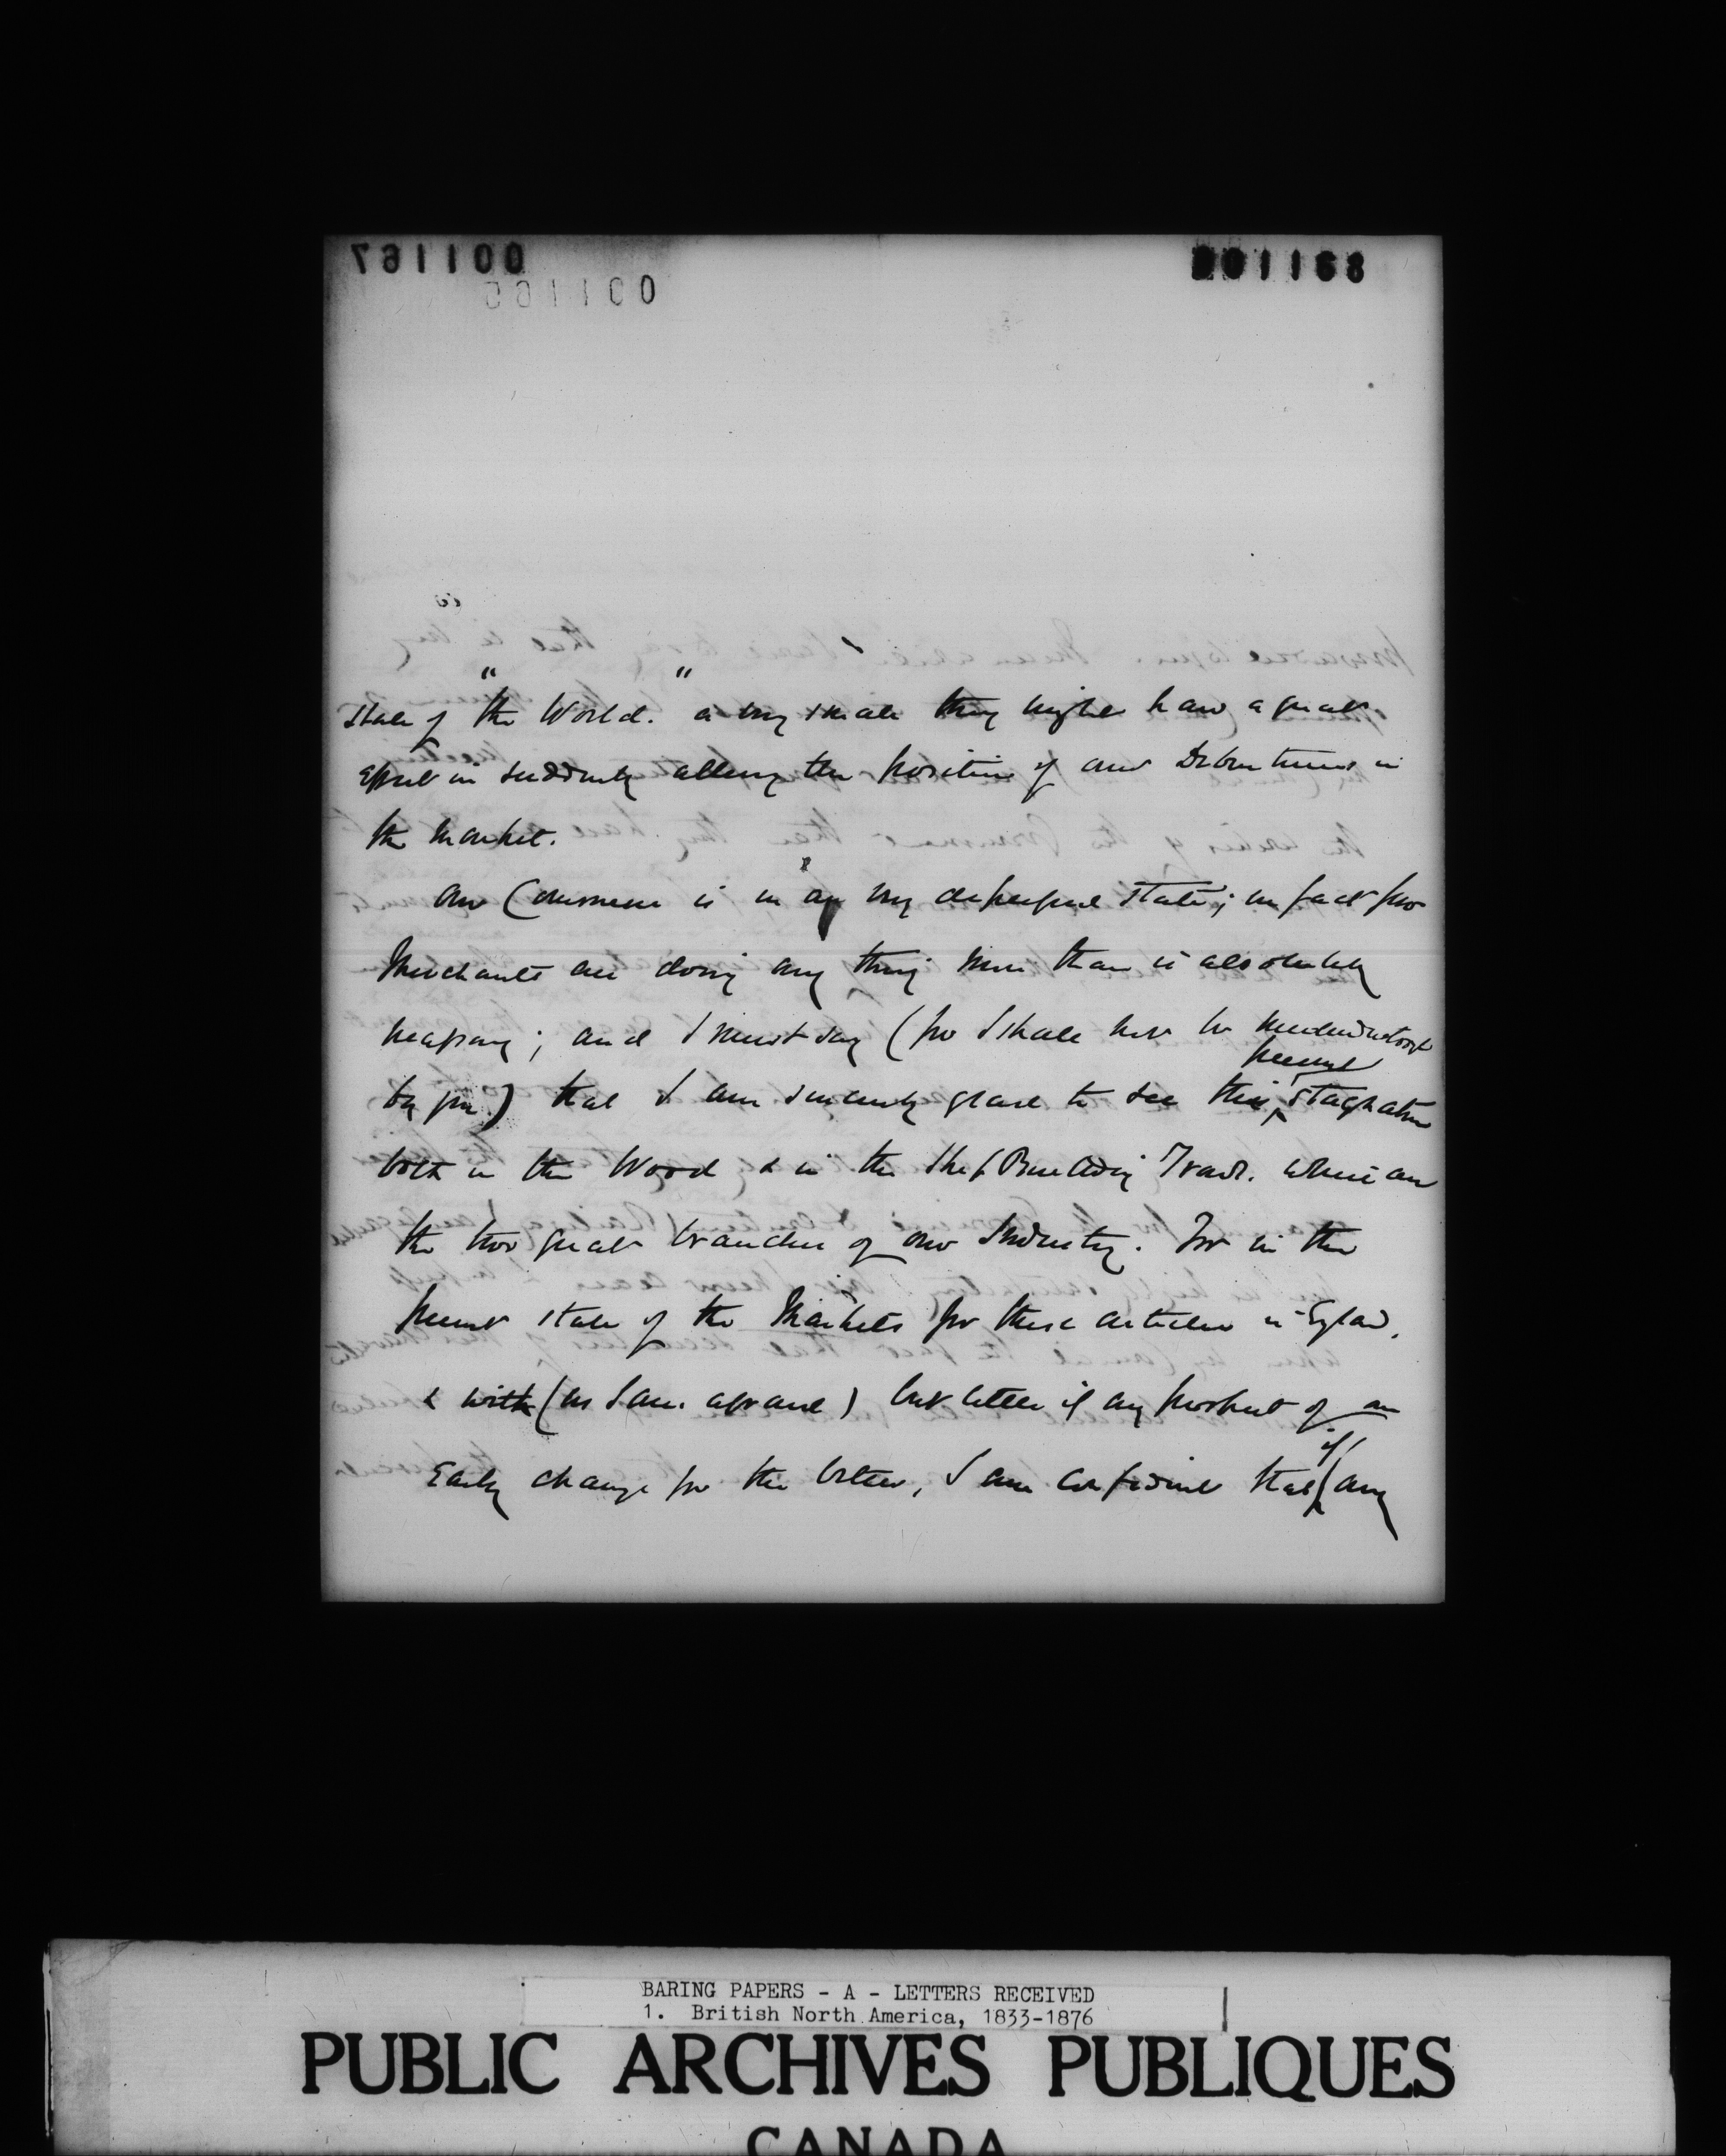 001167
001168
state of "the World." a very small thing might have a great
effect in suddenly altering the position of our Debentures in
the market.
Our Commerce is in a very depressed state; in fact few
Merchants are doing any thing more than is absolutely
necessary; and I must say (for I shall not be misunderstood
by you) that I am sincerely glad to see this present stagnation
both in the Wood & in the Ship Building Trade. which are
the two great branches of our Industry. For in the
present state of the Markets for these articles in England,
& with (as I am afraid) but little if any prospect of an
Early change for the better, I am confident that if any
BARING PAPERS - A - LETTERS RECEIVED
1. British North America, 1833-1876
PUBLIC ARCHIVES PUBLIQUES
CANADA